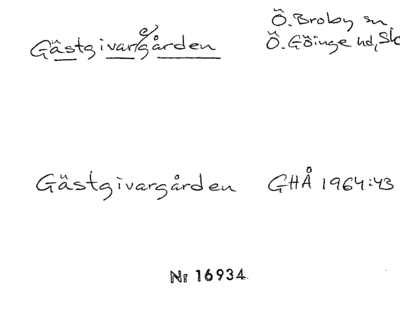 Gästgivar/gården
e/
Ö. Broby sn,
Ö. Göinge hd, Sk
Gästgivargården GHÅ 1964:43
Nr 16934